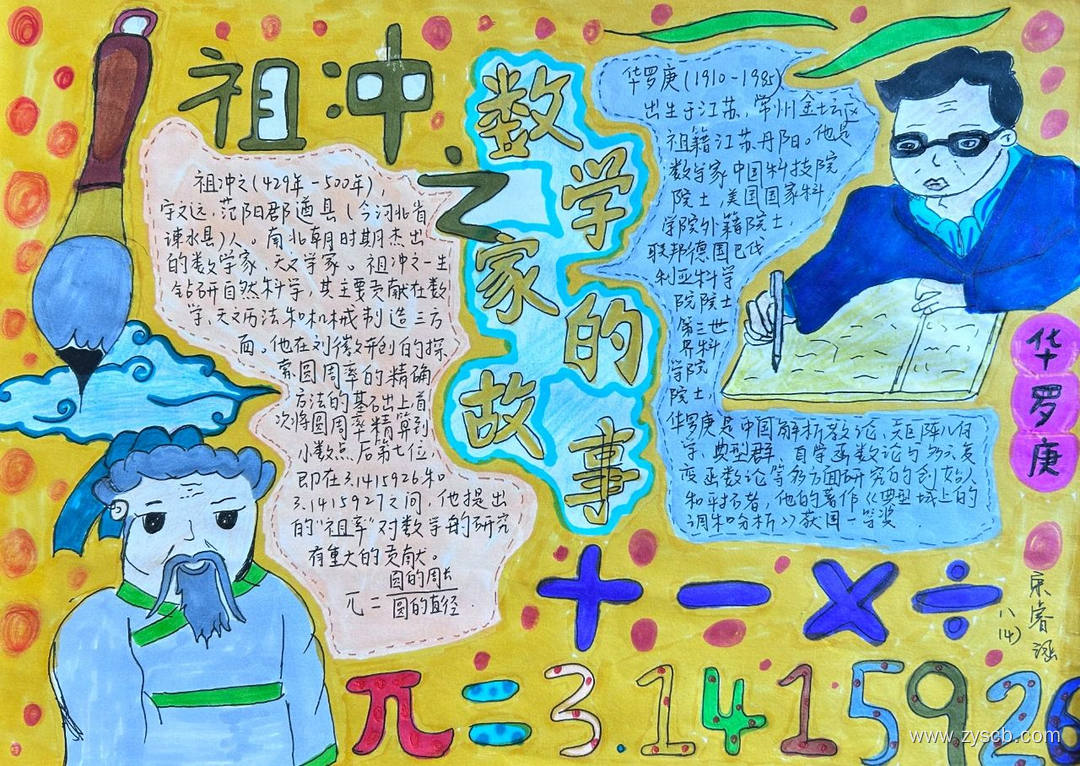 祖冲之
数学家的故事
祖冲之(429年-500年),
字文远,范阳郡遒县(今河北省
涞水县)人。南北朝时期杰出
的数学家、天文学家。祖冲之一生
钻研自然科学,其主要贡献在数
学、天文历法和机械制造三方
面。他在刘徽开创的探
索圆周率的精确
方法的基础上首
次将圆周率精算到
小数点后第七位,
即在3.1415926和
3.1415927之间,他提出
的"祖率"对数学的研究
有重大的贡献。
π=圆的周长/圆的直径.
华罗庚(1910-1985)
出生于江苏,常州金坛区
祖籍江苏丹阳。他是
数学家中国科技院
院士,美国国家科
学院外籍院士
联邦德国巴伐
利亚科学
院院士
第三世
界科
学院
院士,
华罗庚是中国解析数论,矩阵几何
学,典型群,自学函数论与多元复
变函数论等多方面研究的创始人
和开拓者,他的著作《典型域上的
调和分析》获国一等奖
华罗庚
+ - × ÷
π=3.1415926
www.zyscb.com